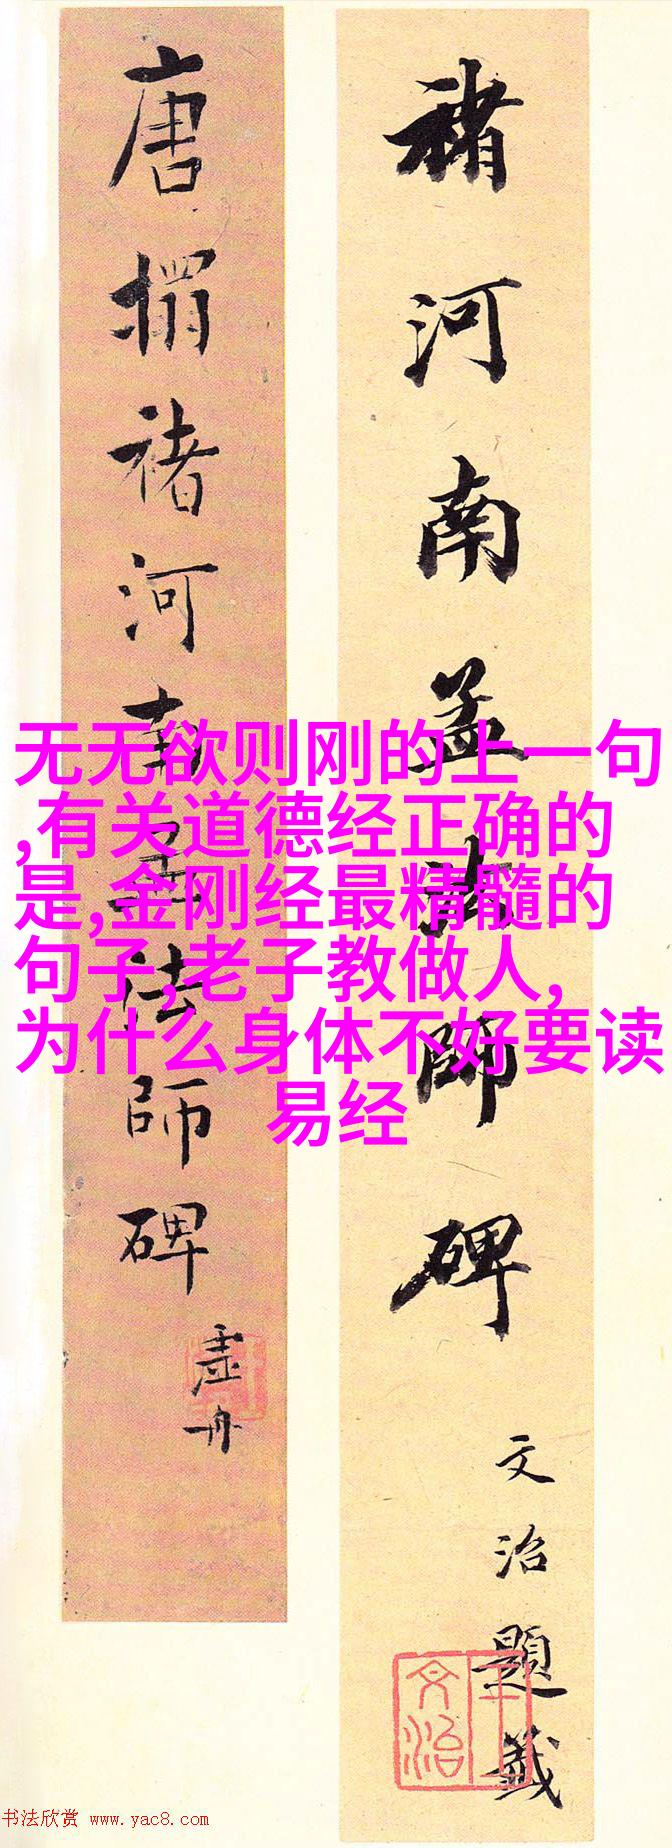 褚河南孟法師碑
文治題籤
文治
王
唐搨褚河南孟法師碑
虛舟
无无欲则刚的上一句
,有关道德经正确的
是,金刚经最精髓的
句子,老子教做人,
为什么身体不好要读
易经
书法欣赏 www.yac8.com